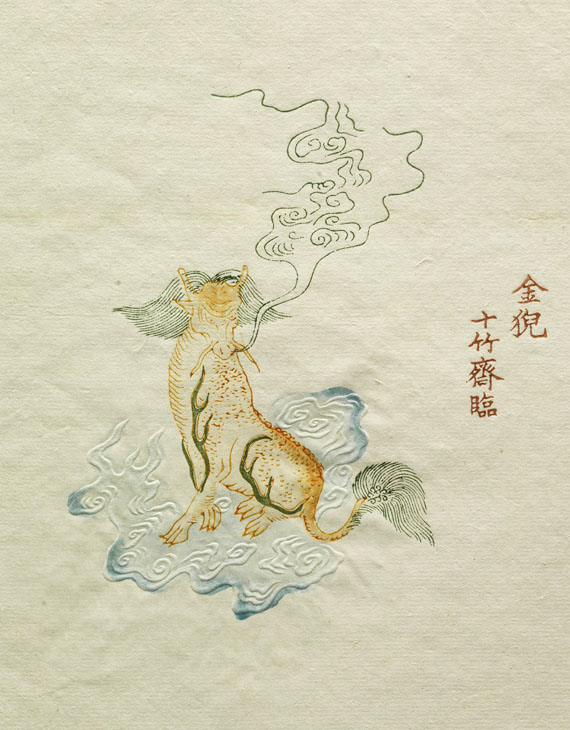 金猊
十竹齋臨